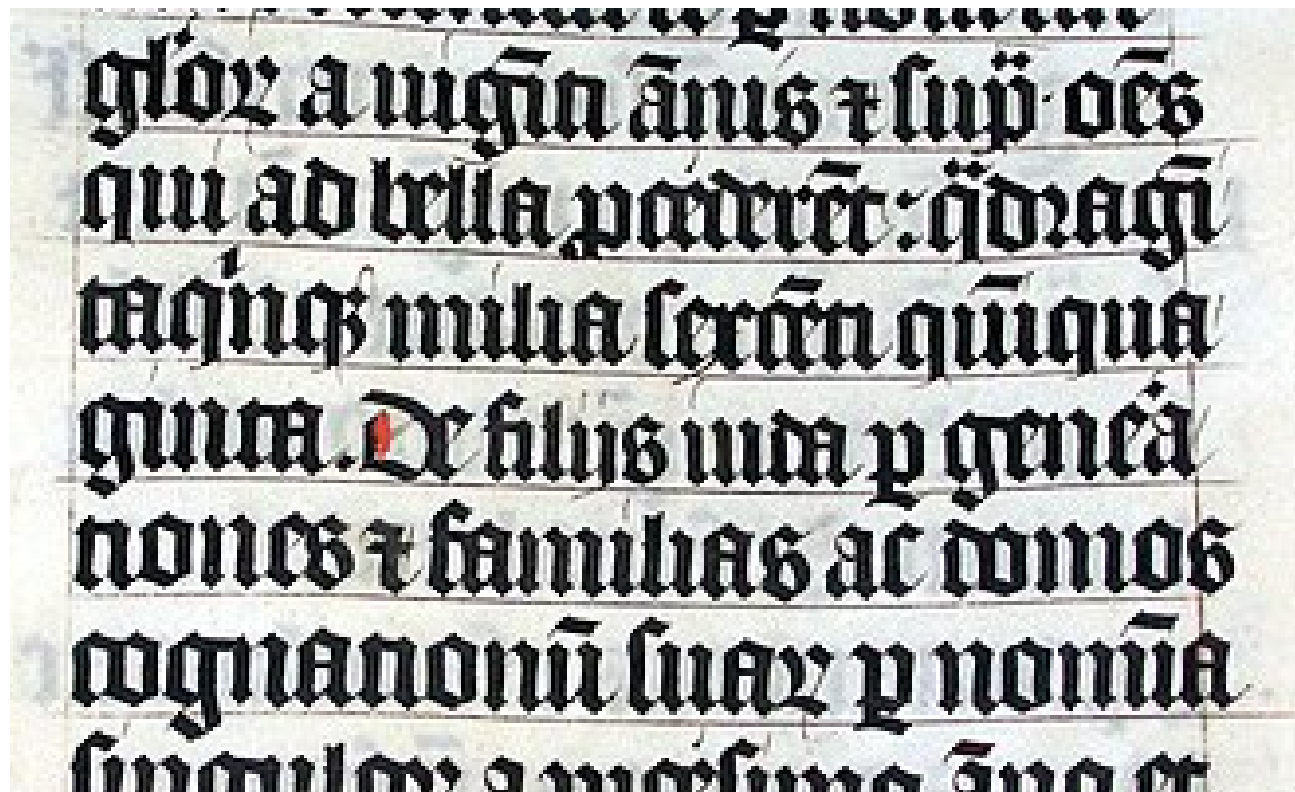 gl'oꝝ a uigīti ānis ⁊ sup̈ oēs
qui ad bella ꝓcederēt: q̈dragī
taqⁱnqꝫ milia sexcēti quīqua
ginta. De filijs iuda ꝑ geneᵃ
tiones ⁊ familias ac domos
cognationū suaꝝ ꝑ nomīa
singuloꝝ a uicesimo āno et